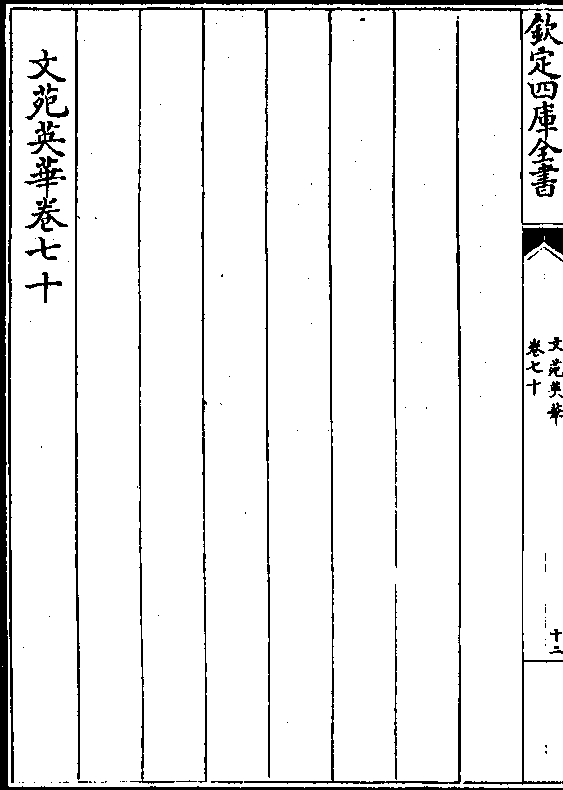 欽定四庫全書
文苑英華
卷七十
十二
文苑英華卷七十